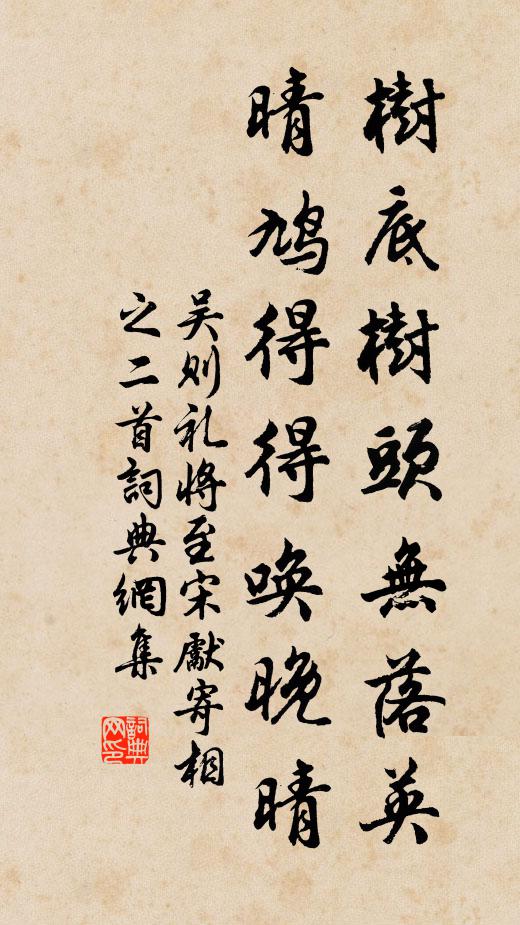 樹底樹頭無落英
晴鳩得得唤晚晴
吴则礼將至宋獻寄相
之二首詞典網集
詞典网印